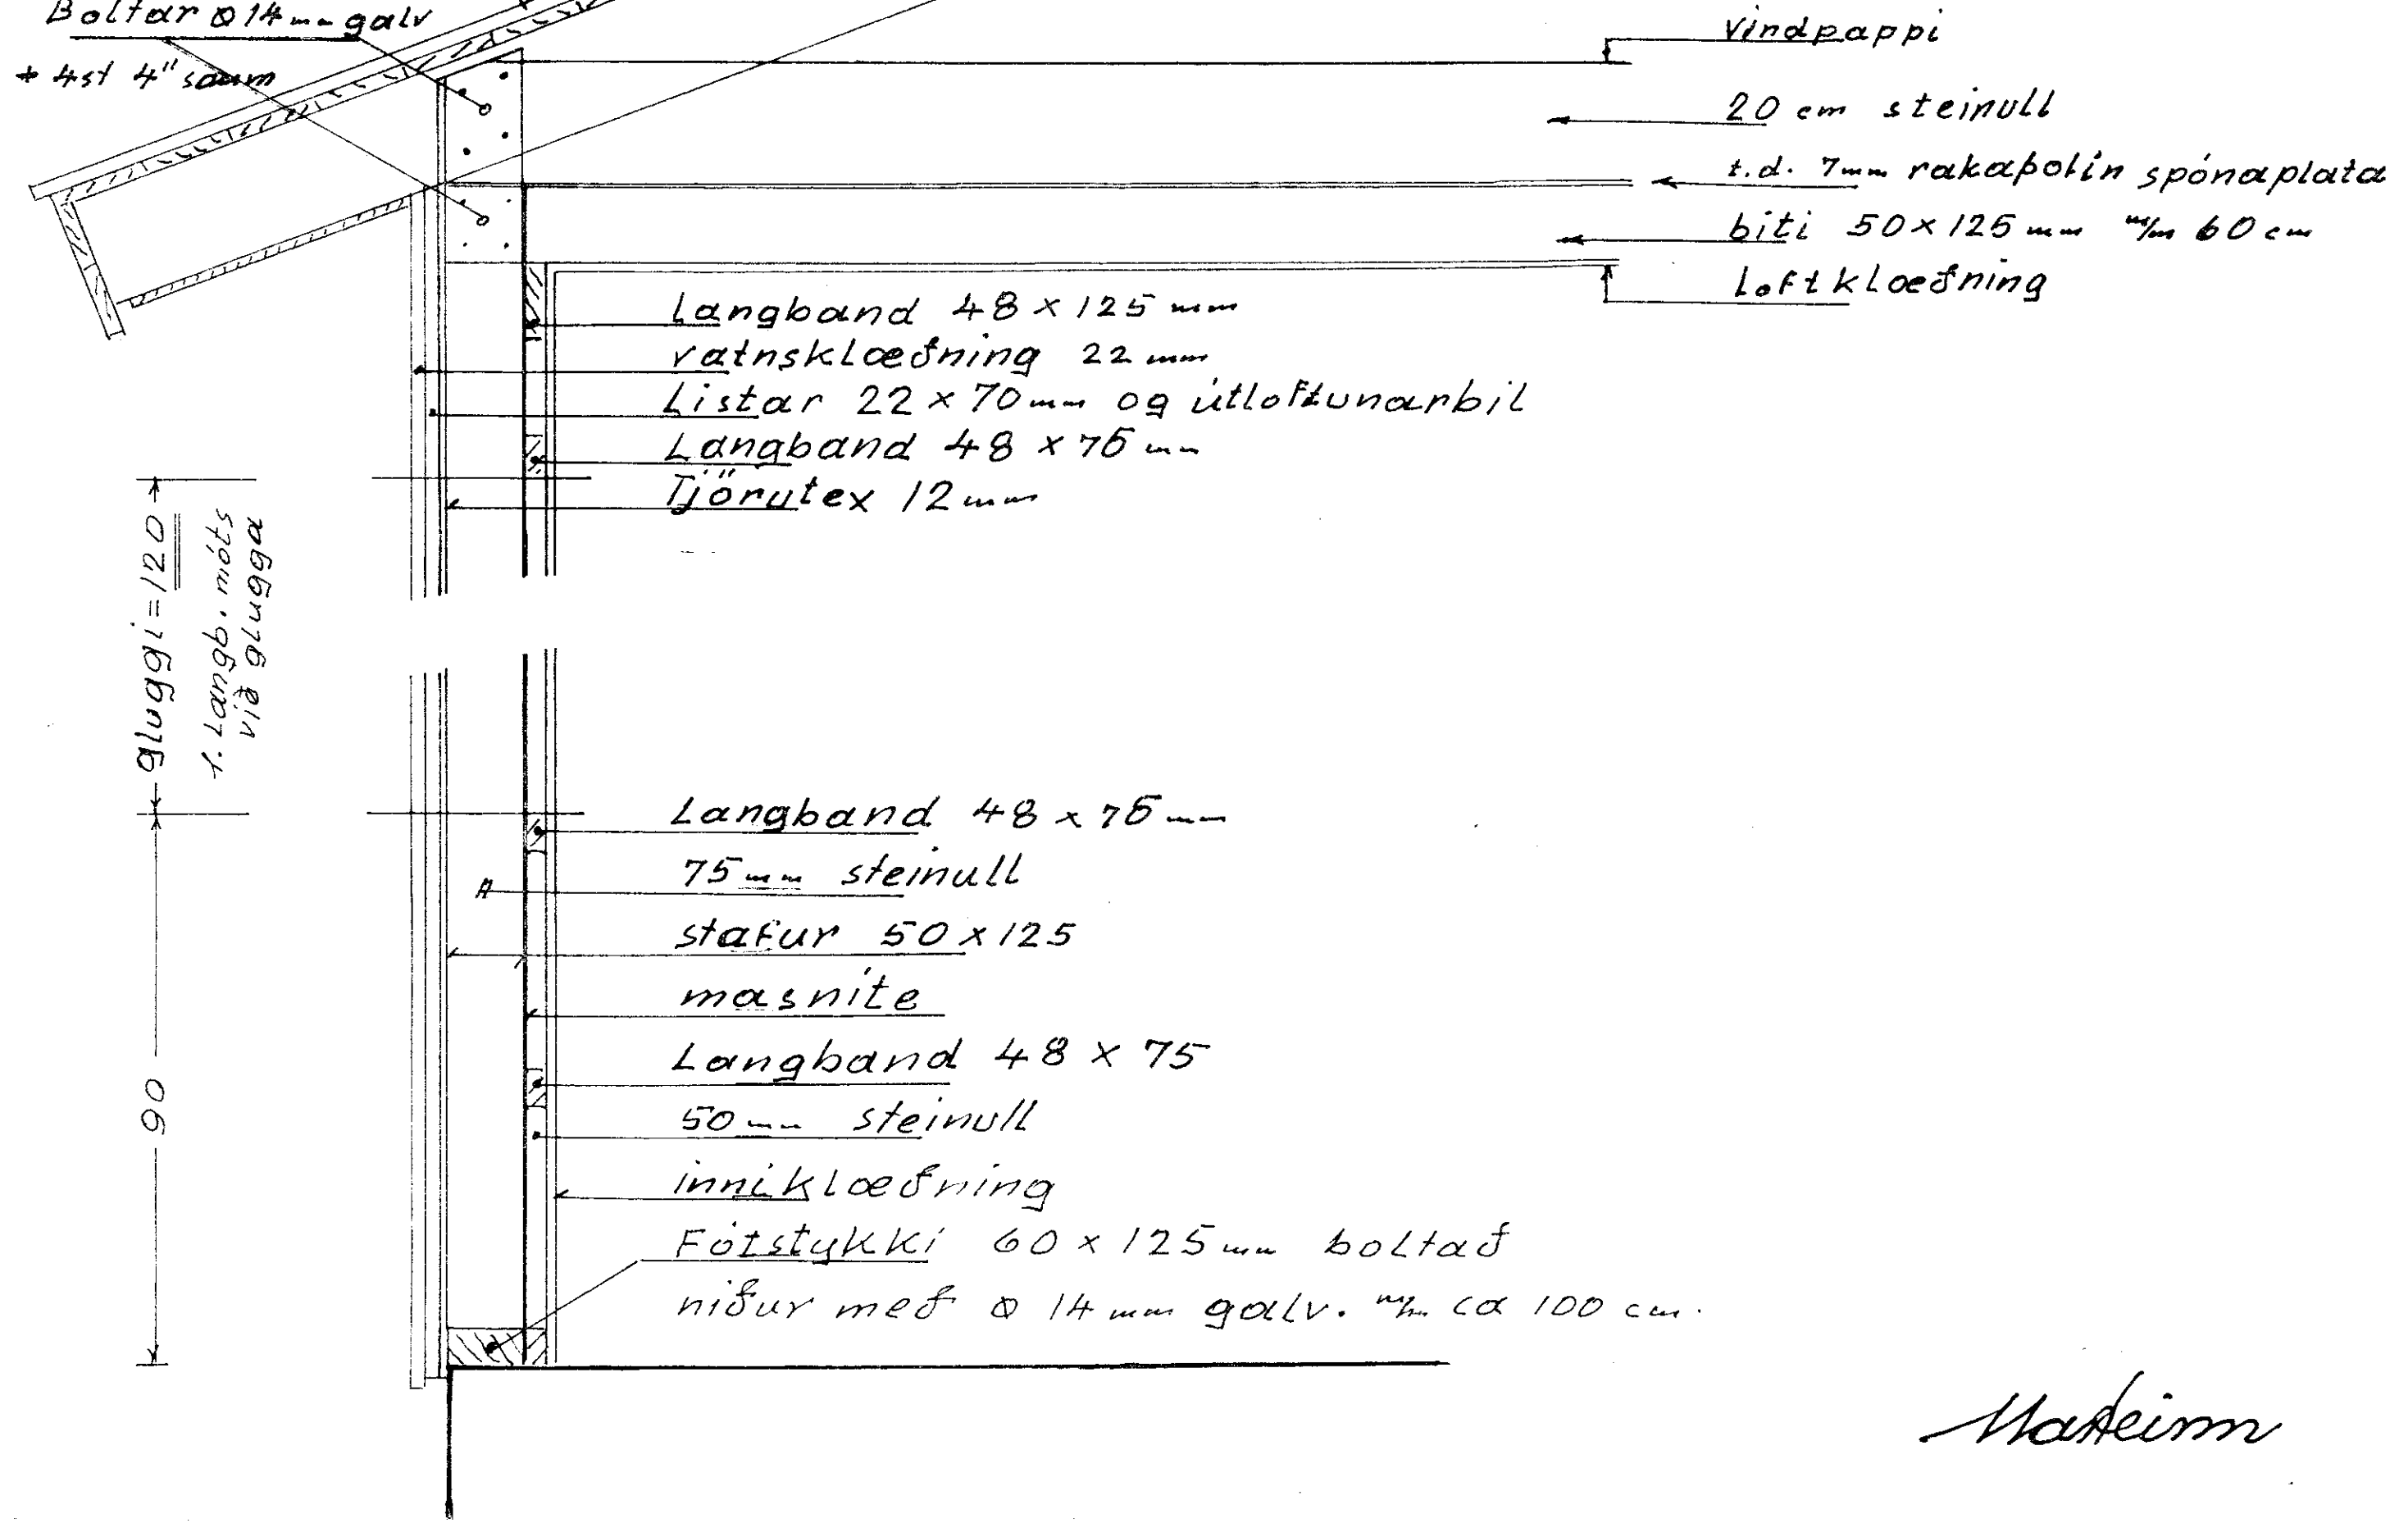 Boltar ⌀ 14 mm galv
+ 4st 4" saum
vindpappi
20 cm steinull
t.d. 7mm rakaþolin spónaplata
biti 50 x 125 mm m/m 60 cm
Loftklæðning
Langband 48 x 125 mm
vatnsklæðning 22 mm
Listar 22 x 70 mm og útloftunarbil
Langband 48 x 75 mm
Tjörutex 12 mm
gluggi = 120
1. Langb. móts
við glugga
Langband 48 x 75 mm
75 mm steinull
stafur 50 x 125
masnite
Langband 48 x 75
50 mm steinull
inniklæðning
Fótstykki 60 x 125 mm boltað
niður með ⌀ 14 mm galv. m/m ca 100 cm.
90